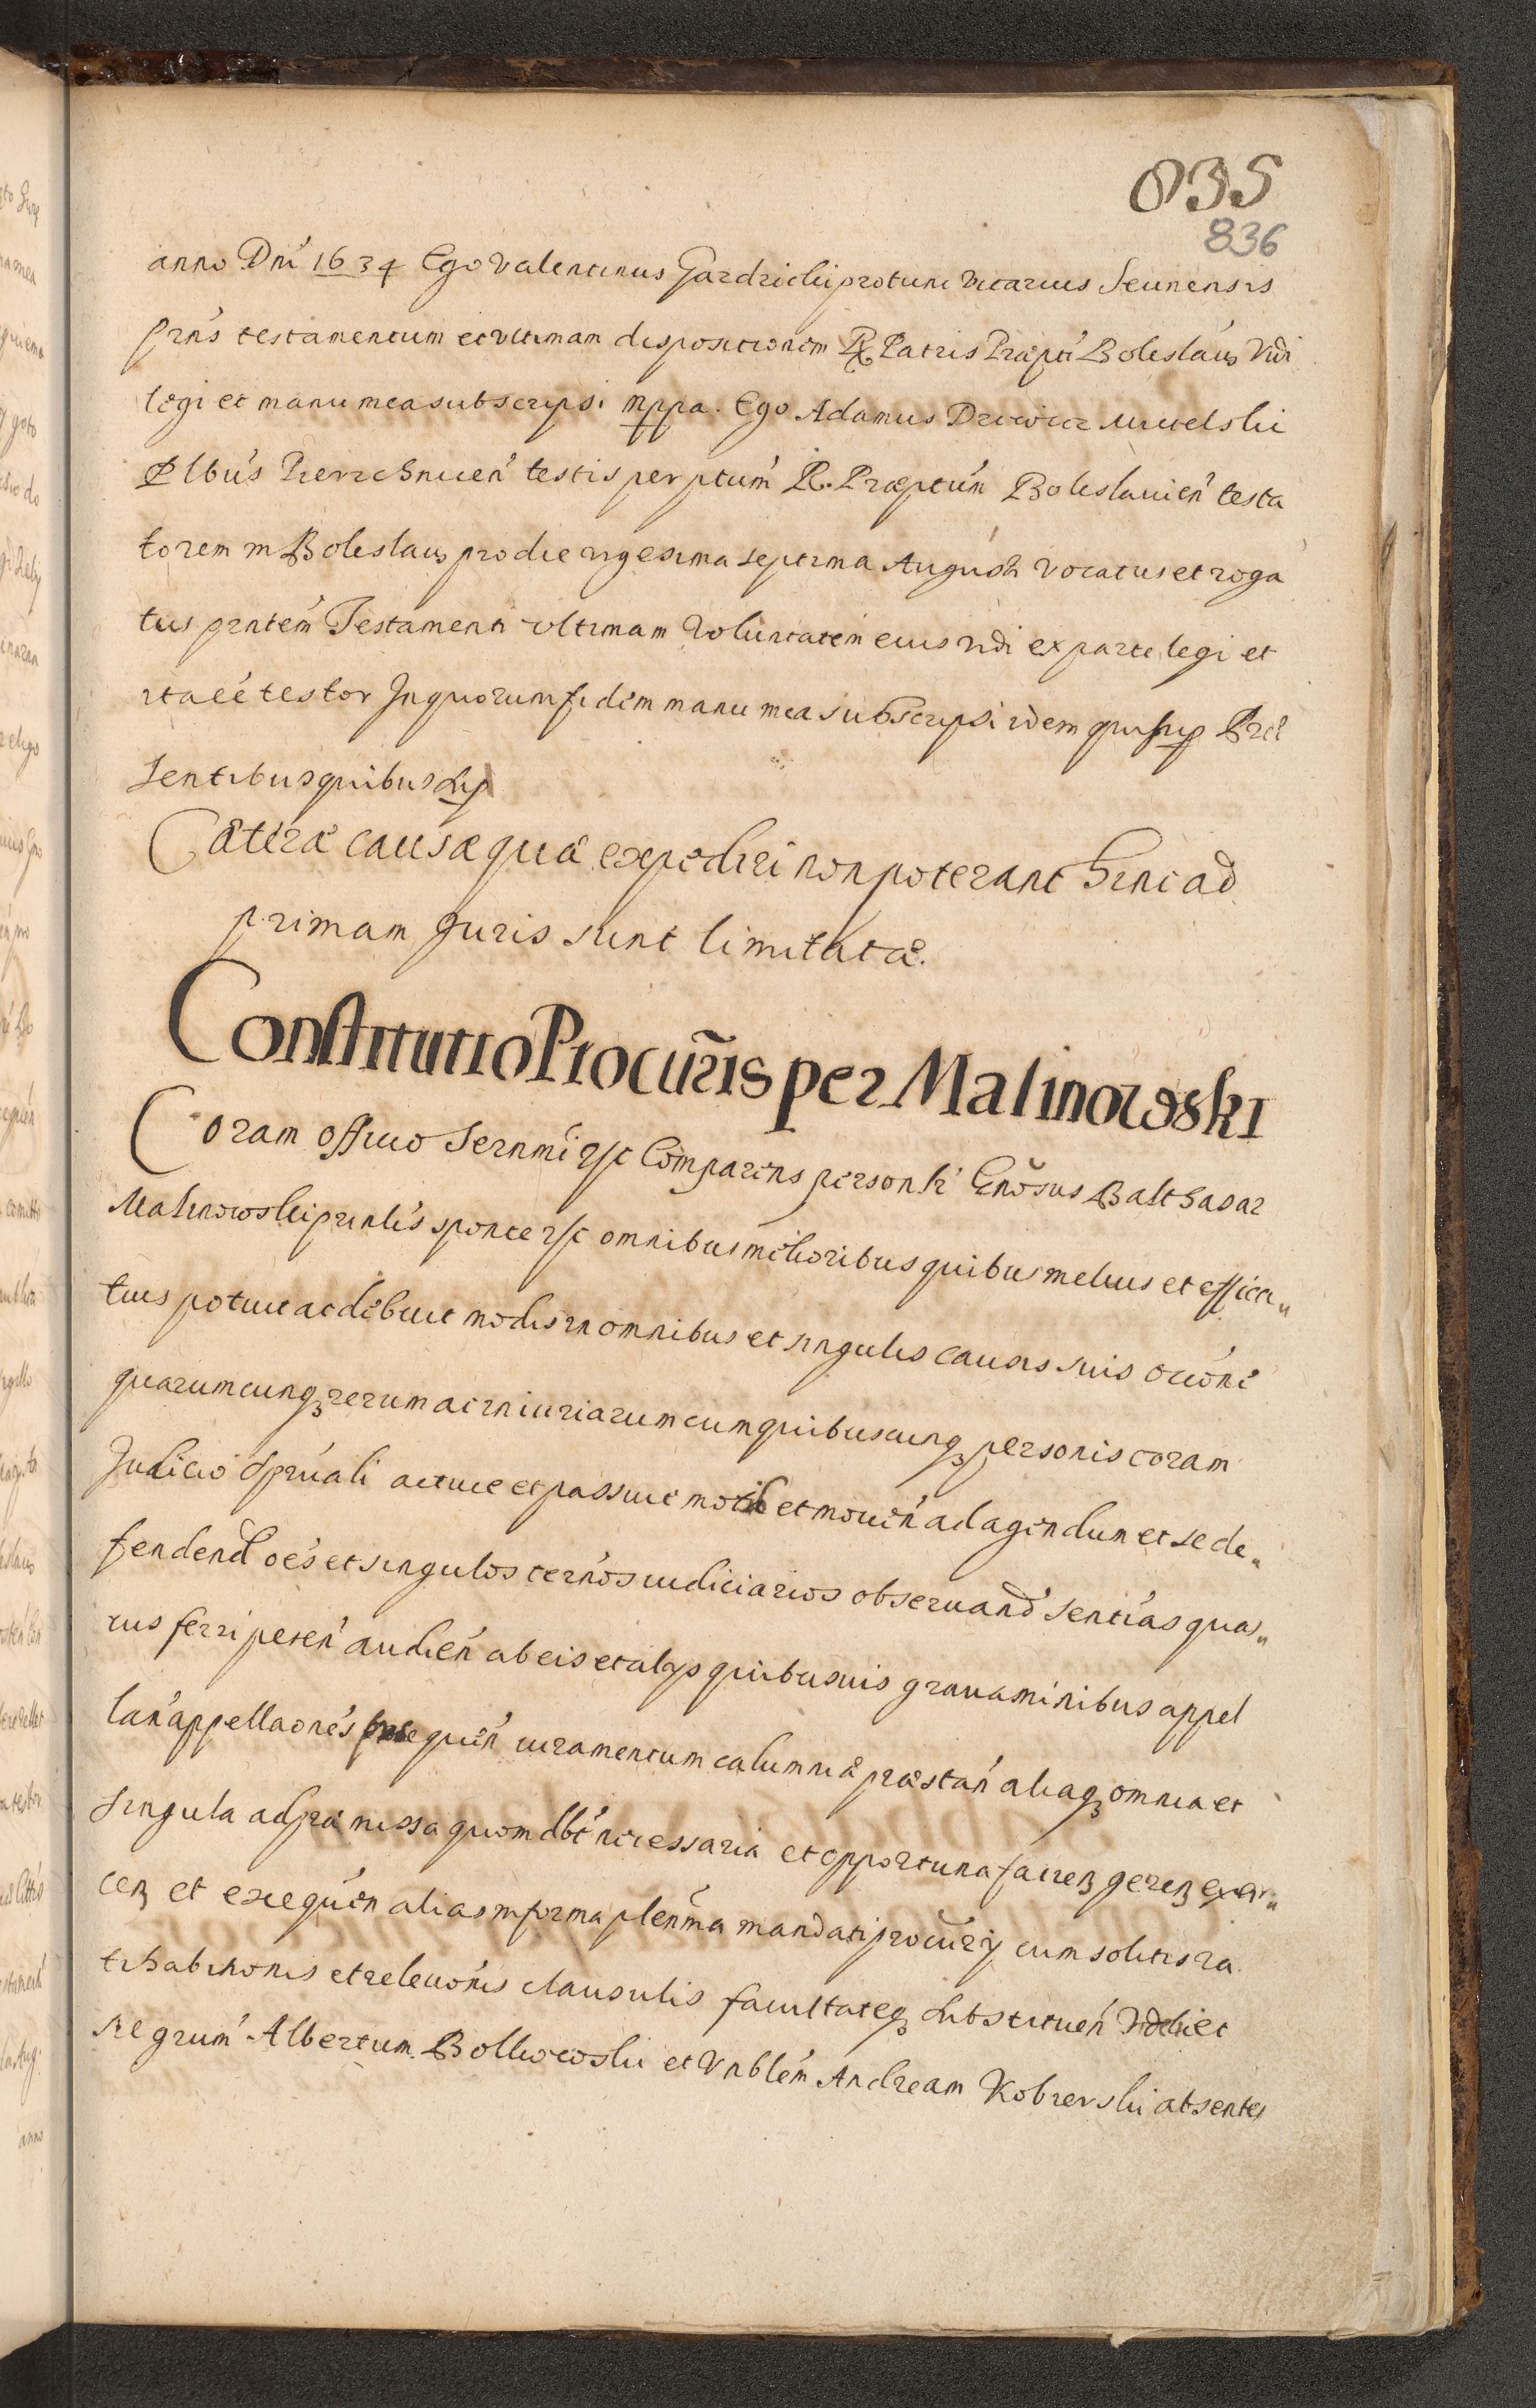 835
836
anno Dni 1634 Ego Valentinus Gardzicki protunc vicarius Seunensis
prns testamentum et vltimam dispositionem R. Patris Præpti Boleslaus vidi
legi et manu mea subscripsi mppa. Ego Adamus
Plbus testis per ptum R. Præptum Boleslauien testa
torem in Boleslaus pro die vigesima septima Augusti vocatus et roga
tus pntem Testamenti vltimam voluntatem eius vidi ex parte legi et
ita eé testor In quorum fidem manu mea subscripsi idem qui sup Præ
sentibus quibus sup
Cæteræ causæ quæ expediri non poterant hinc ad
primam Juris sunt limitatæ.
Constitutio Procuris per Malinowski
Coram officio Sernmi etc Comparens personlr Gnosus Balthasar
Malinowski prnlis sponte etc omnibus melioribus quibus melius et effica„
tius potuit ac debuit modis in omnibus et singulis causis suis occõne
quarumcunq rerum ac iniuriarum cum quibuscunq personis coram
Judicio Spruali actiue et passiue motis et mouen ad agendum et se de„
fendend oes et singulos ternos iudiciarios obseruand sentias quas„
uis ferri peten audien ab eis et alys quibusuis grauaminibus appel
lan appellaones prosequen iuramentum calumniæ præstan aliaq omnia et
singula ad præmissa quomdlbt necessaria et opportuna facien geren exer„
cen et exequen alias in forma plenma mandati procurij cum solitis ra
tihabitionis et releuonis clausulis facultateq substituen vdelicet
Albertum et Vnblem Andream Kobierski absentes